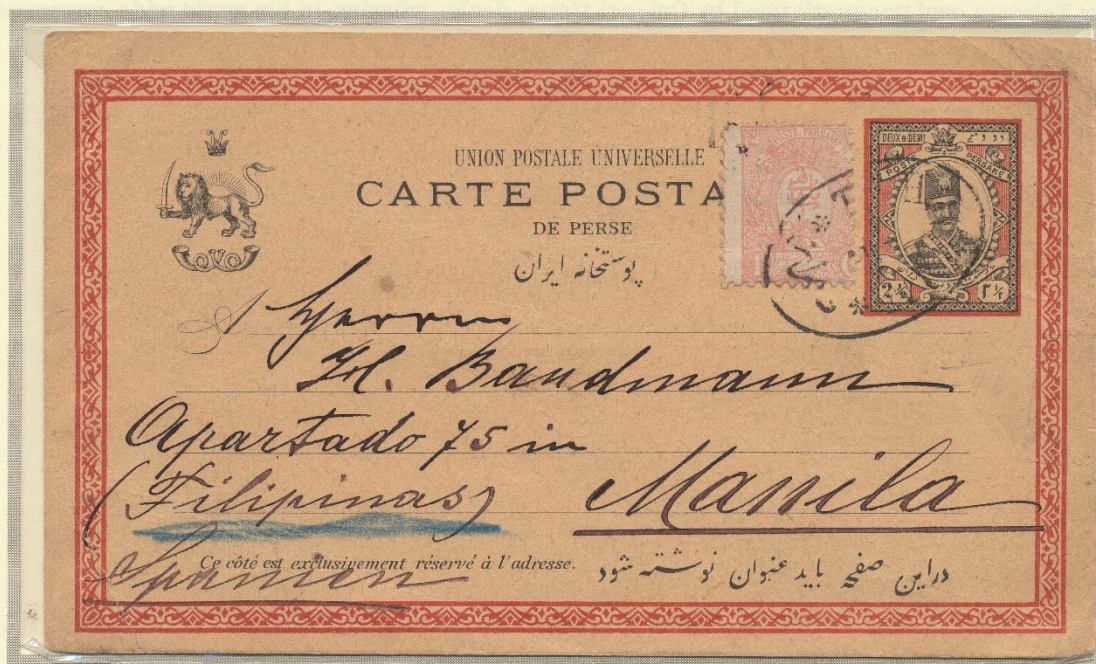 UNION POSTALE UNIVERSELLE
CARTE POSTA
DE PERSE
پوستخانه ایران
DEUX & DEMI
POSTE PERSANE
2½ ۲½
Herrn
H. Bandmann
Apartado 75 in
(Filipinas) Manila
Spanien
Ce côté est exclusivement réservé à l'adresse.
دراین صفحه باید عنوان نوشته شود